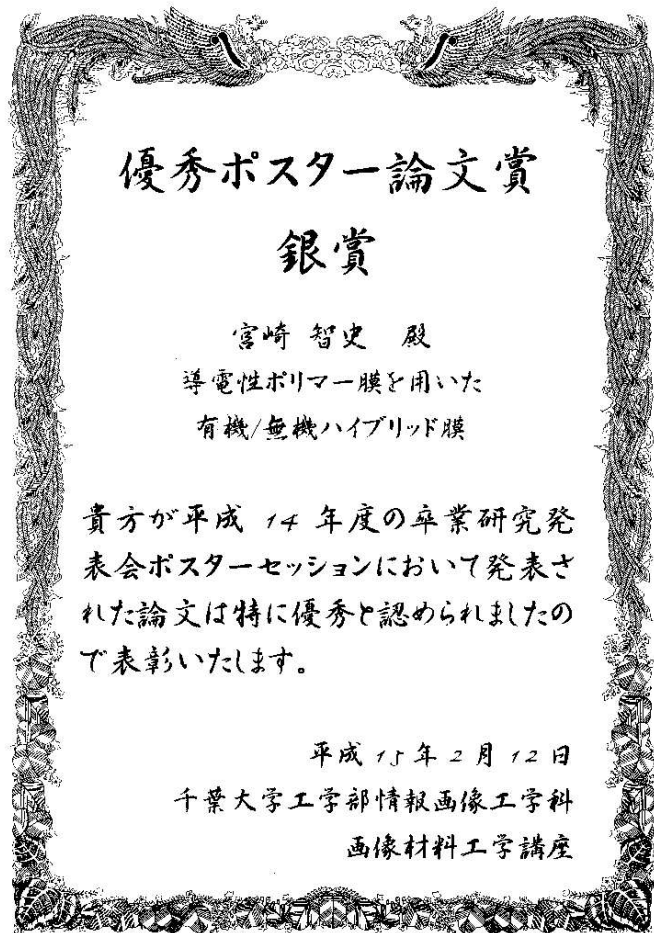 優秀ポスター論文賞
銀賞
宮崎 智史 殿
導電性ポリマー膜を用いた
有機/無機ハイブリッド膜
貴方が平成 14 年度の卒業研究発
表会ポスターセッションにおいて発表さ
れた論文は特に優秀と認められましたの
で表彰いたします。
平成 15 年 2 月 12 日
千葉大学工学部情報画像工学科
画像材料工学講座